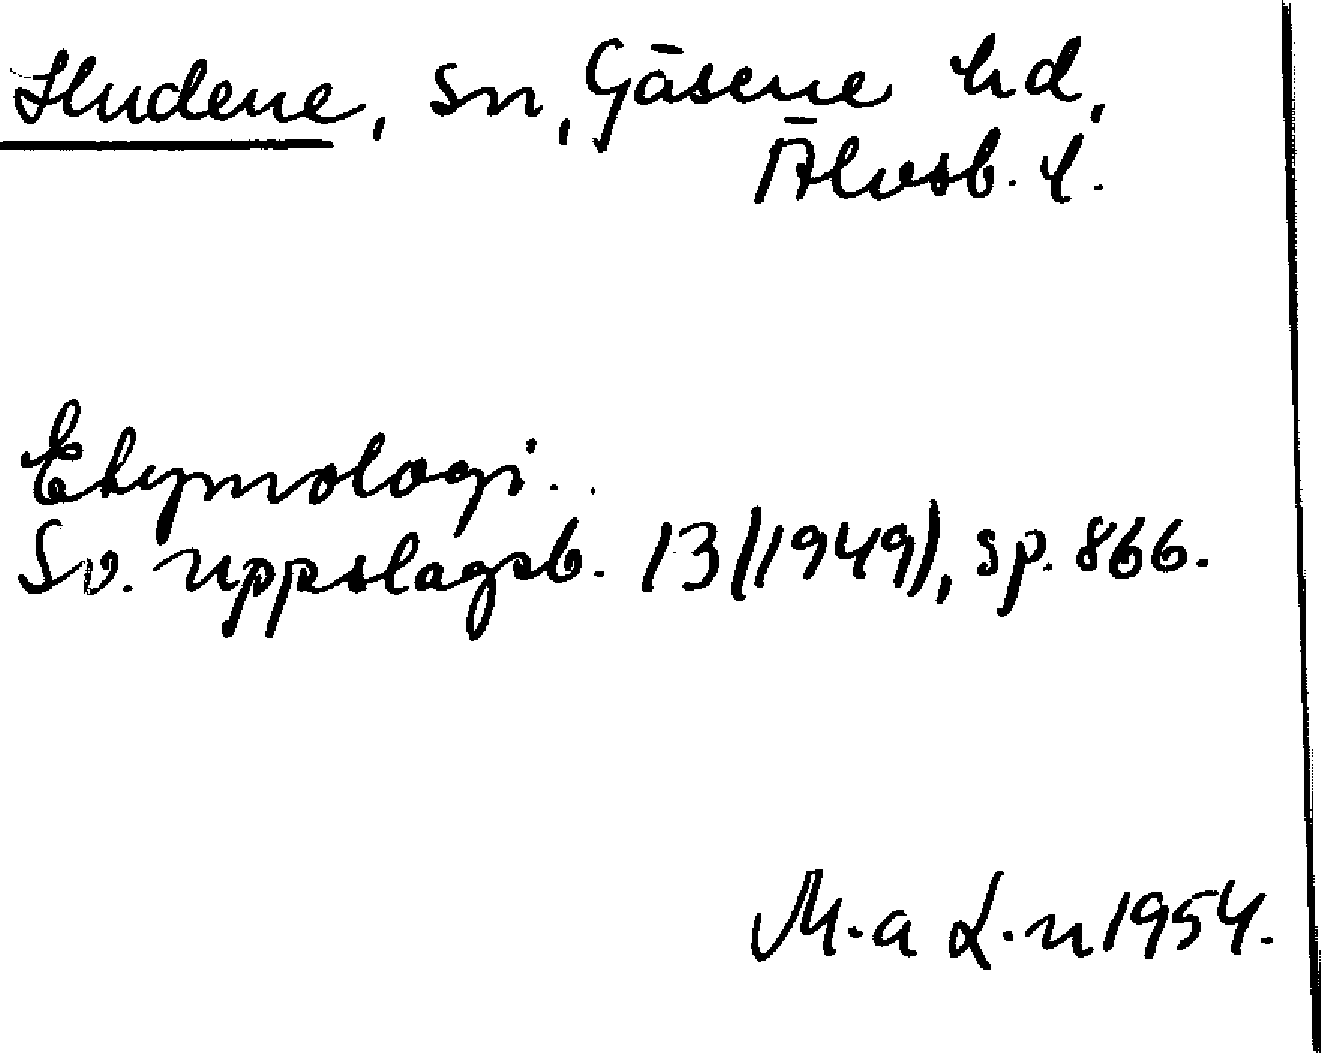 Hudene, sn, Gäsene hd,
Älvsb. l.
Etymologi.
Sv. uppslagsb. 13 (1949), sp. 866.
M.a L.n 1954.